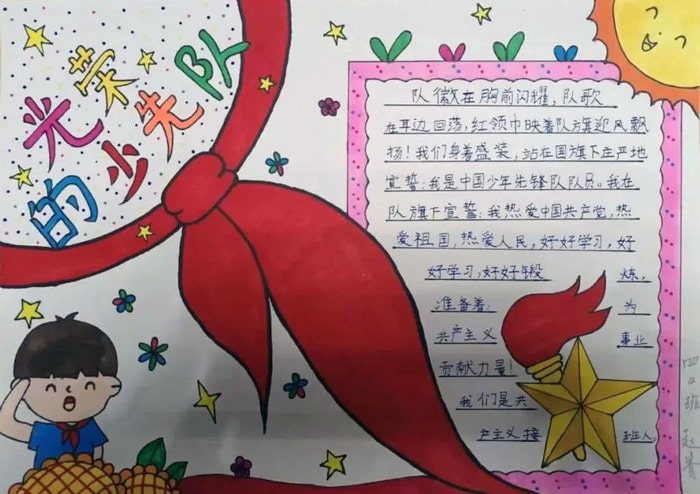 光荣
的少先队
队徽在胸前闪耀，队歌
在耳边回荡，红领巾映着队旗迎风飘
扬！我们身着盛装，站在国旗下庄严地
宣誓：我是中国少年先锋队队员。我在
队旗下宣誓：我热爱中国共产党，热
爱祖国，热爱人民，好好学习，好
好学习，好好锻 炼，
准备着： 为
共产主义 事业
贡献力量！
我们是共
产主义接 班人